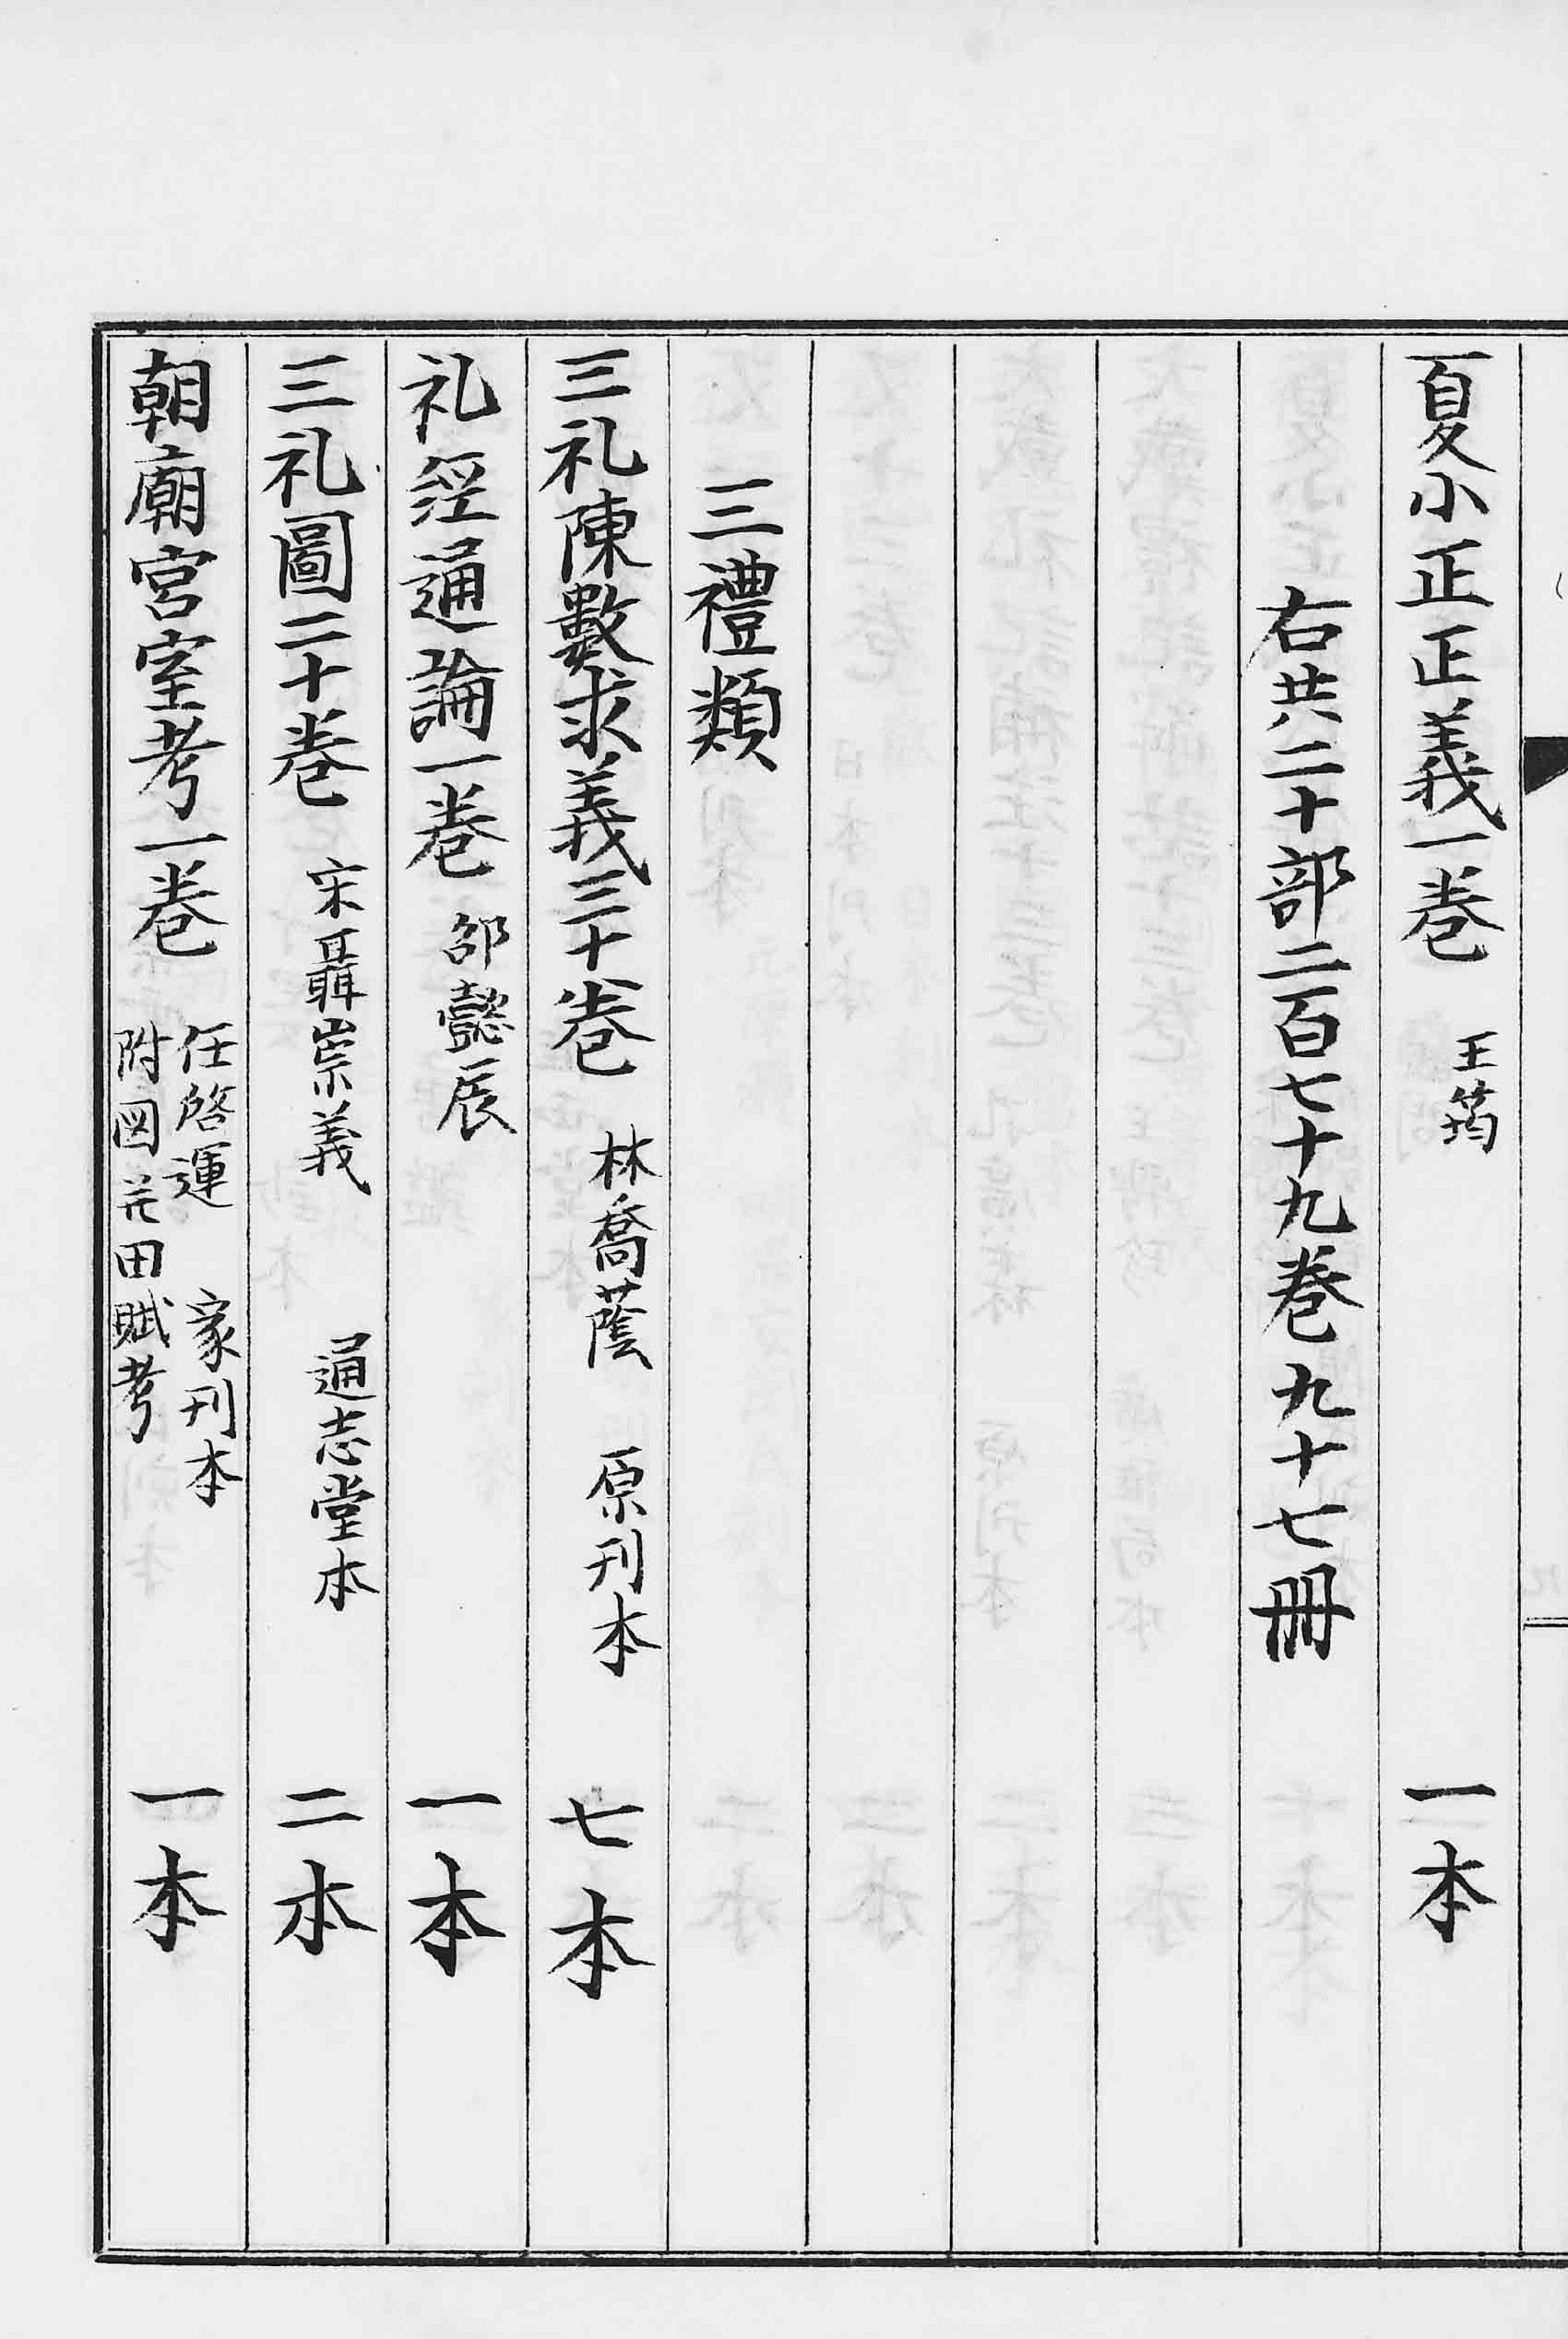 夏小正正義一卷 王筠 一本
右共二十部二百七十九卷九十七冊
三禮類
三礼陳數求義三十卷 林喬蔭 原刊本 七本
礼経通論一卷 邵懿辰 一本
三礼圖二十卷 宋聶崇義 通志堂本 二本
朝廟宮室考一卷 任啓運 家刊本 附図并田賦考 一本